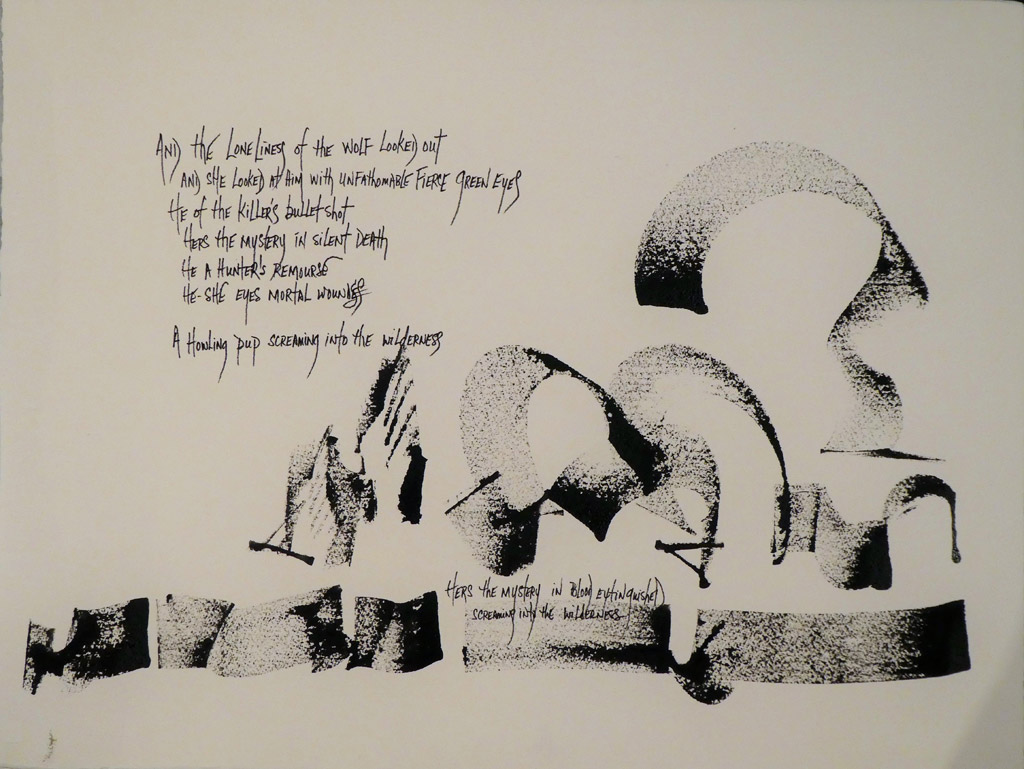 AND the LONELINESS of the WOLF LOOKED OUT
AND SHE LOOKED AT HIM WITH UNFATHOMABLE FIERCE GREEN EYES
HE OF the KILLER'S bullet shot
HERS the MYSTERY IN SILENT DEATH
HE A HUNTER'S REMOURSE
HE-SHE EYES MORTAL WOUNDS
A HOWLING PUP SCREAMING INTO the WILDERNESS
HERS the MYSTERY IN BLOOD EXTINGUISHED
SCREAMING INTO THE WILDERNESS